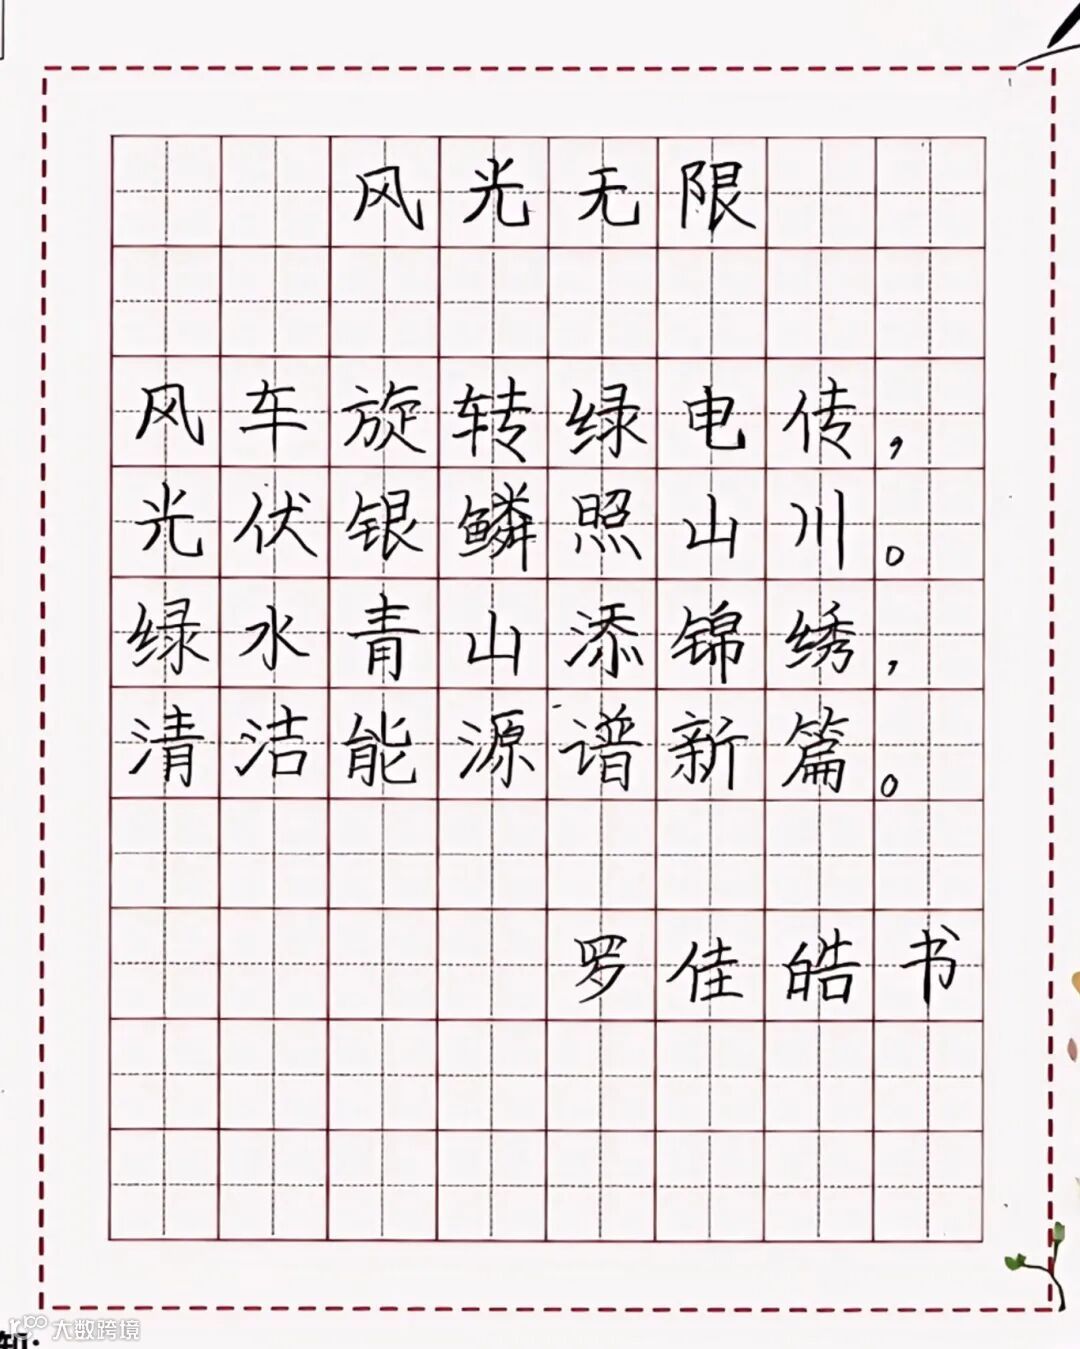 风光无限
风车旋转绿电传，
光伏银鳞照山川。
绿水青山添锦绣，
清洁能源谱新篇。
罗佳皓书
大数跨境